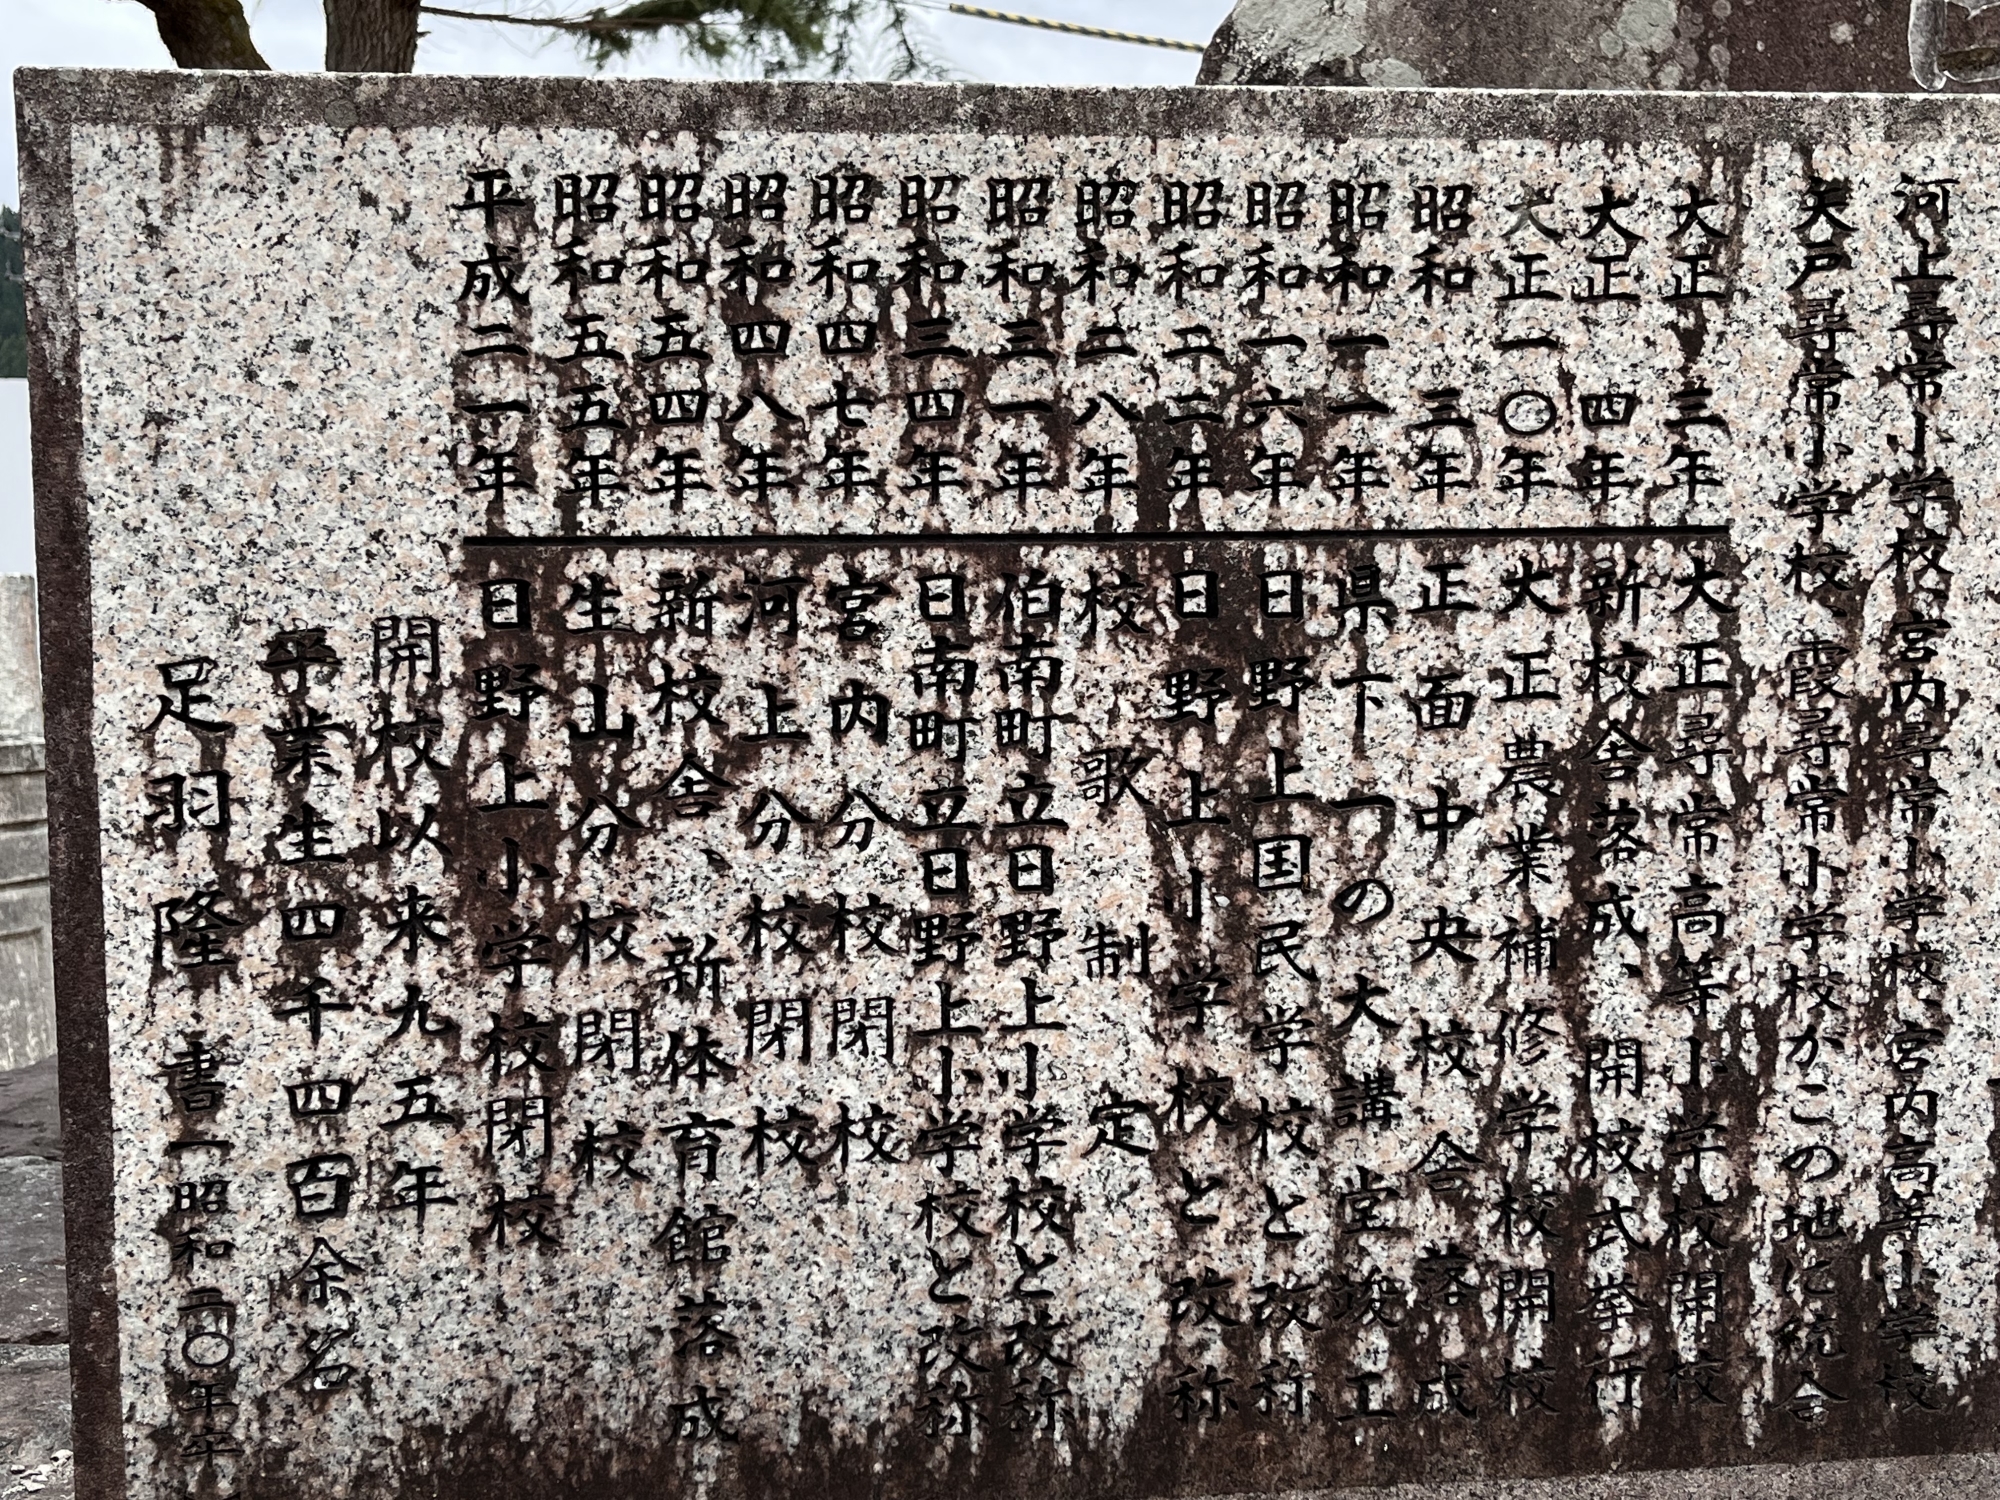 河上尋常小学校、宮内尋常小学校、宮内高等小学校
矢戸尋常小学校、霞尋常小学校がこの地に統合
大正三年 大正尋常高等小学校開校
大正四年 新校舎落成、開校式挙行
大正一〇年 大正農業補修学校開校
昭和三年 正面中央校舎落成
昭和一一年 県下一の大講堂竣工
昭和一六年 日野上国民学校と改称
昭和二二年 日野上小学校と改称
昭和二八年 校歌制定
昭和三一年 伯南町立日野上小学校と改称
昭和三四年 日南町立日野上小学校と改称
昭和四七年 宮内分校閉校
昭和四八年 河上分校閉校
昭和五四年 新校舎、新体育館落成
昭和五五年 生山分校閉校
平成二一年 日野上小学校閉校
開校以来九五年
卒業生四千四百余名
足羽隆 書(昭和二〇年卒)